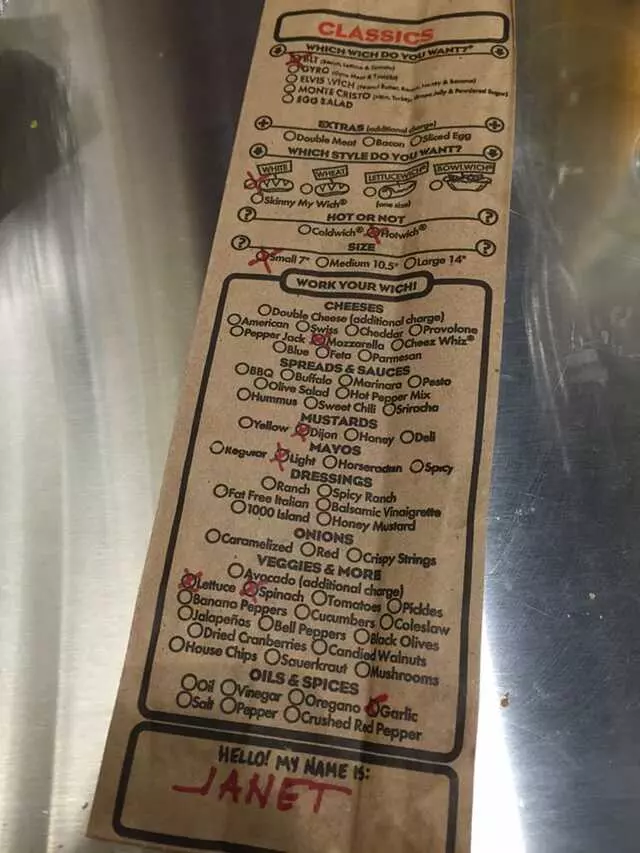 CLASSICS
WHICH WICH DO YOU WANT?
BLT (Bacon, Lettuce & Tomato)
GYRO (Gyro Meat & Tzatziki)
ELVIS WICH (Peanut Butter, Honey & Banana)
MONTE CRISTO (Ham, Turkey, Grape Jelly & Powdered Sugar)
EGG SALAD
EXTRAS (additional charge)
Double Meat Bacon Sliced Egg
WHICH STYLE DO YOU WANT?
WHITE WHEAT LETTUCEWICH® BOWLWICH®
(one size)
Skinny My Wich®
HOT OR NOT
Coldwich® Hotwich®
SIZE
Small 7" Medium 10.5" Large 14"
WORK YOUR WICH!
CHEESES
Double Cheese (additional charge)
American Swiss Cheddar Provolone
Pepper Jack Mozzarella Cheez Whiz®
Blue Feta Parmesan
SPREADS & SAUCES
BBQ Buffalo Marinara Pesto
Olive Salad Hot Pepper Mix
Hummus Sweet Chili Sriracha
MUSTARDS
Yellow Dijon Honey Deli
MAYOS
Regular Light Horseradish Spicy
DRESSINGS
Ranch Spicy Ranch
Fat Free Italian Balsamic Vinaigrette
1000 Island Honey Mustard
ONIONS
Caramelized Red Crispy Strings
VEGGIES & MORE
Avocado (additional charge)
Lettuce Spinach Tomatoes Pickles
Banana Peppers Cucumbers Coleslaw
Jalapeños Bell Peppers Black Olives
Dried Cranberries Candied Walnuts
House Chips Sauerkraut Mushrooms
OILS & SPICES
Oil Vinegar Oregano Garlic
Salt Pepper Crushed Red Pepper
HELLO! MY NAME IS:
JANET